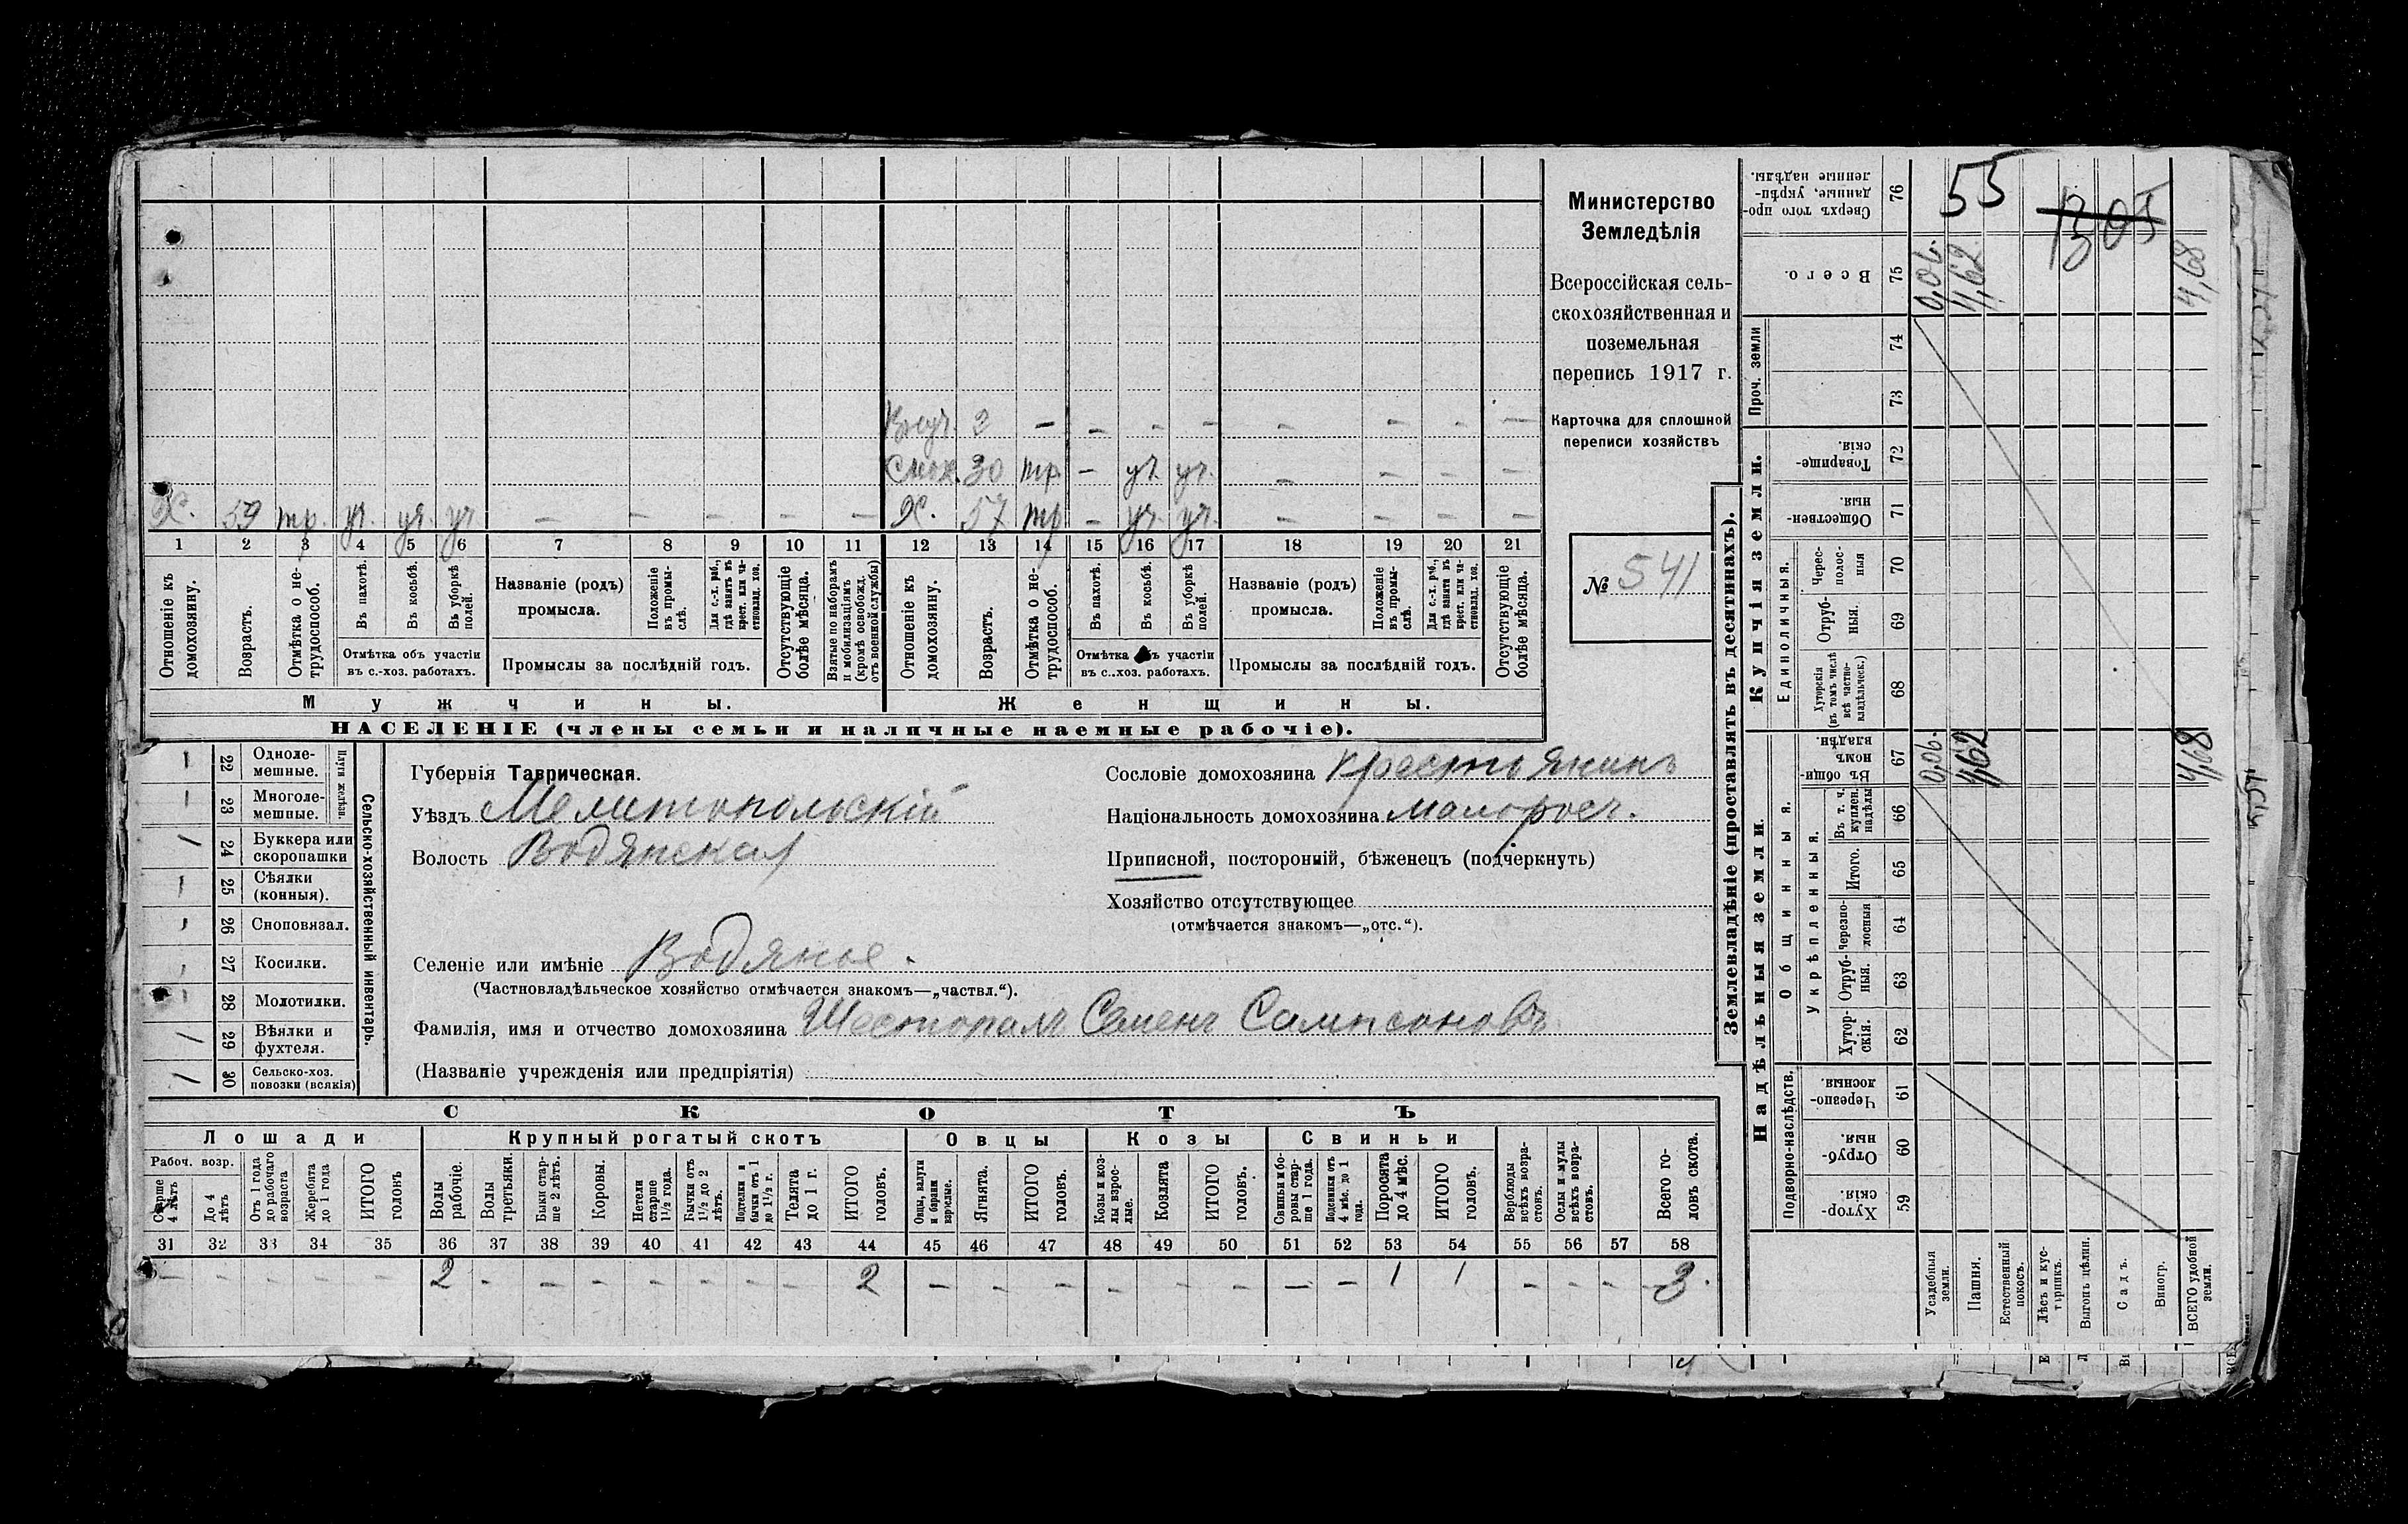 Внуч. 2 — — — — — — — —
Снох. 30 тр. — уч. уч. — — — —
Х. 59 тр. уч. уч. уч. — — — — — Х. 57 тр. — уч. уч. — — — —
1 2 3 4 5 6 7 8 9 10 11 12 13 14 15 16 17 18 19 20 21
Отношеніе къ домохозяину.
Возрастъ.
Отмѣтка о нетрудоспособ.
Въ пахотѣ.
Въ косьбѣ.
Въ уборкѣ полей.
Отмѣтка объ участіи
въ с.-хоз. работахъ.
Названіе (родъ)
промысла.
Положеніе въ промыслѣ.
Для с.-х. раб., гдѣ занятъ въ крест. или частновлад. хоз.
Промыслы за послѣдній годъ.
Отсутствующіе болѣе мѣсяца.
Взятые по наборамъ и мобилизаціямъ (кромѣ освобожд. отъ военной службы)
Отношеніе къ домохозяину.
Возрастъ.
Отмѣтка о нетрудоспособ.
Въ пахотѣ.
Въ косьбѣ.
Въ уборкѣ полей.
Отмѣтка объ участіи
въ с..хоз. работахъ.
Названіе (родъ)
промысла.
Положеніе въ промыслѣ.
Для с.-х. раб., гдѣ занятъ въ крест. или частновлад. хоз.
Промыслы за послѣдній годъ.
Отсутствующіе болѣе мѣсяца.
Мужчины. Женщины.
НАСЕЛЕНІЕ (члены семьи и наличные наемные рабочіе).
Министерство
Земледѣлія
Всероссійская сель-
скохозяйственная и
поземельная
перепись 1917 г.
Карточка для сплошной
переписи хозяйствъ
№ 541
Сельско-хозяйственный инвентарь.
Плуги желѣзн.
22 Одноле-
мешные.
23 Многоле-
мешные.
24 Буккера или
скоропашки
25 Сѣялки
(конныя).
26 Сноповязал.
27 Косилки.
28 Молотилки.
29 Вѣялки и
фухтеля.
30 Сельско-хоз.
повозки (всякія)
Губернія Таврическая.
Уѣздъ Мелитопольскій
Волость Водянская
Селеніе или имѣніе Водяное.
(Частновладѣльческое хозяйство отмѣчается знакомъ—„частвл.“).
Фамилія, имя и отчество домохозяина Шестопалъ Семенъ Сампсоновъ
(Названіе учрежденія или предпріятія)
Сословіе домохозяина крестьянинъ
Національность домохозяина малоросъ.
Приписной, посторонній, бѣженецъ (подчеркнуть)
Хозяйство отсутствующее
(отмѣчается знакомъ—„отс.“).
СКОТЪ
Лошади Крупный рогатый скотъ Овцы Козы Свиньи
Рабоч. возр.
Старше 4 лѣтъ
До 4 лѣтъ
Отъ 1 года до рабочаго возраста
Жеребята до 1 года
ИТОГО головъ
Волы рабочіе.
Волы третьяки.
Быки старше 2 лѣтъ.
Коровы.
Нетели старше 1½ года.
Бычки отъ 1½ до 2 лѣтъ.
Подтелки и бычки отъ 1 до 1½ г.
Телята до 1 г.
ИТОГО головъ.
Овцы, валухи и бараны взрослые.
Ягнята.
ИТОГО головъ.
Козы и козлы взрослые.
Козлята
ИТОГО головъ.
Свиньи и боровы старше 1 года.
Подсвинки отъ 4 мѣс. до 1 года.
Поросята до 4 мѣс.
ИТОГО головъ.
Верблюды всѣхъ возрастовъ.
Ослы и мулы всѣхъ возрастовъ.
Всего головъ скота.
31 32 33 34 35 36 37 38 39 40 41 42 43 44 45 46 47 48 49 50 51 52 53 54 55 56 57 58
— — — — — 2 — — — — — — — 2 — — — — — — — — 1 1 — — — 3.
Землевладѣніе (проставлять въ десятинахъ).
Купчія земли.
Надѣльныя земли.
Сверхъ того проданные, укрѣпленные надѣлы. 76 55
1305
Всего. 75 0,06. 4,62 4,68
Проч. земли 74 73
Товарищескія. 72
Общественныя. 71
Единоличныя.
Чересполосныя 70
Отрубныя. 69
Хуторскія (въ томъ числѣ всѣ частновладѣльческ.) 68
Общинныя.
Въ общинномъ владѣн. 67 0,06. 4,62 4,68
Укрѣпленныя.
Въ т. ч. куплен. надѣлы 66
Итого. 65
Черезполосныя 64
Отрубныя. 63
Хуторскія. 62
Подворно-наслѣдств.
Черезполосныя. 61
Отрубныя. 60
Хуторскія. 59
Усадебныя земли.
Пашня.
Естественный покосъ.
Лѣсъ и кустарникъ.
Выгонъ цѣлин.
Садъ.
Виногр.
ВСЕГО удобной земли.